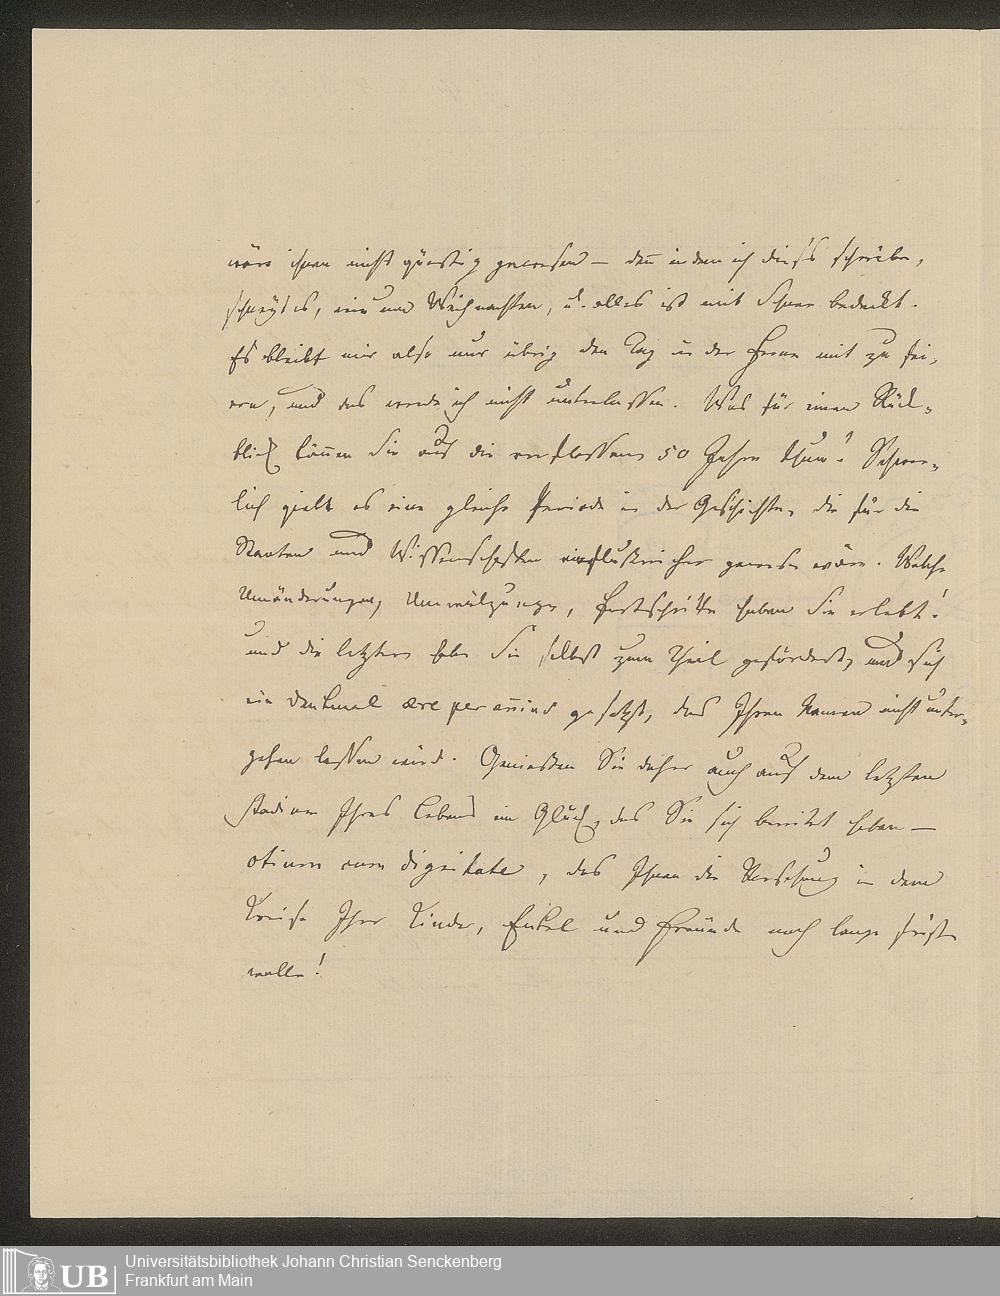 wäre ihnen nicht günstig gewesen — den̄ indem ich dieses schreibe,
schneyt es, wie um Weihnachten, u. alles ist mit Schnee bedeckt.
Es bleibt mir also nur übrig den Tag in der Ferne mit zu fei-
ern, und das werde ich nicht unterlassen. Was für einen Rück-
blick kön̄en Sie auf die verflossenen 50 Jahre thun! Schwer-
lich giebt es eine gleiche Periode in der Geschichte, die für die
Staaten und Wissenschaften einflußreicher gewesen wäre. Welche
Umänderungen, Umwälzungen, Fortschritte haben Sie erlebt!
und die letztern haben Sie selbst zum Theil gefördert, und sich
ein Denkmal ære perennius gesetzt, das Ihren Namen nicht unter-
gehen lassen wird. Geniessen Sie daher auch auf dem letzten
Stadium Ihres Lebens ein Glück, das Sie sich bereitet haben —
otium cum dignitate, das Ihnen die Vorsehung in dem
Kreise Ihrer Kinder, Enkel und Freunde noch lange fristen
wolle!
UB
Universitätsbibliothek Johann Christian Senckenberg
Frankfurt am Main